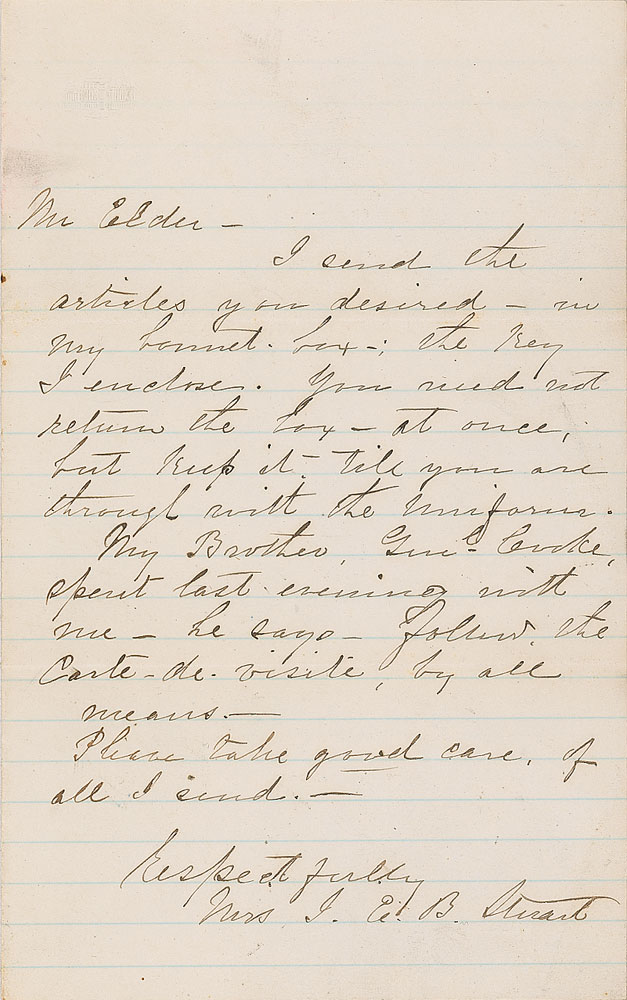 Mr Elder –
I send the
articles you desired – in
my bonnet-box –; the key
I enclose. You need not
return the box – at once,
but keep it till you are
through with the uniform.
My Brother, Genl. Cooke,
spent last evening with
me – he says – follow, the
Carte-de-visite, by all
means. —
Please take good care, of
all I send. —
Respectfully
Mrs J. E. B. Stuart